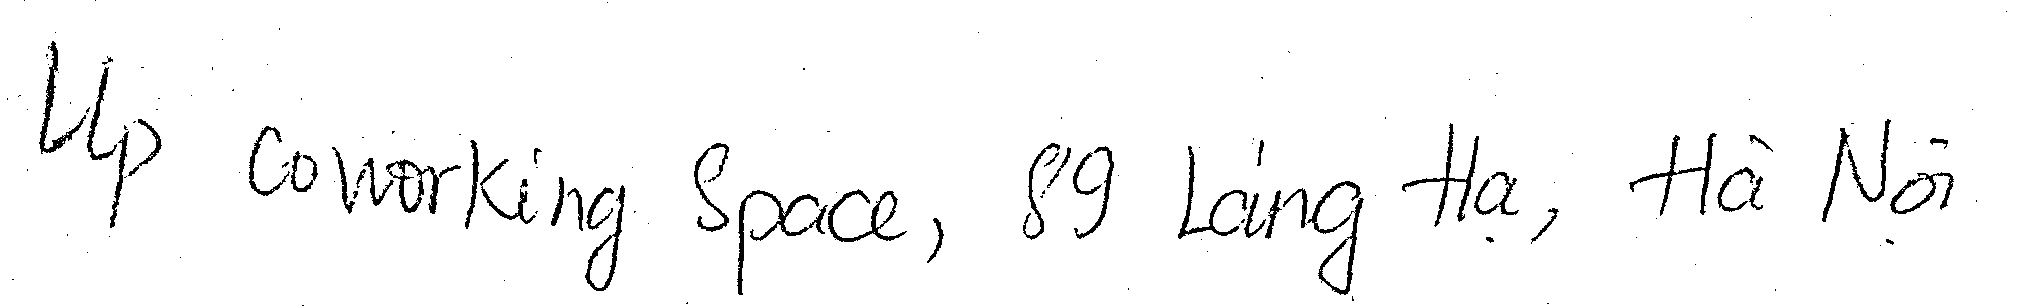 Up Coworking Space, 89 Láng Hạ, Hà Nội